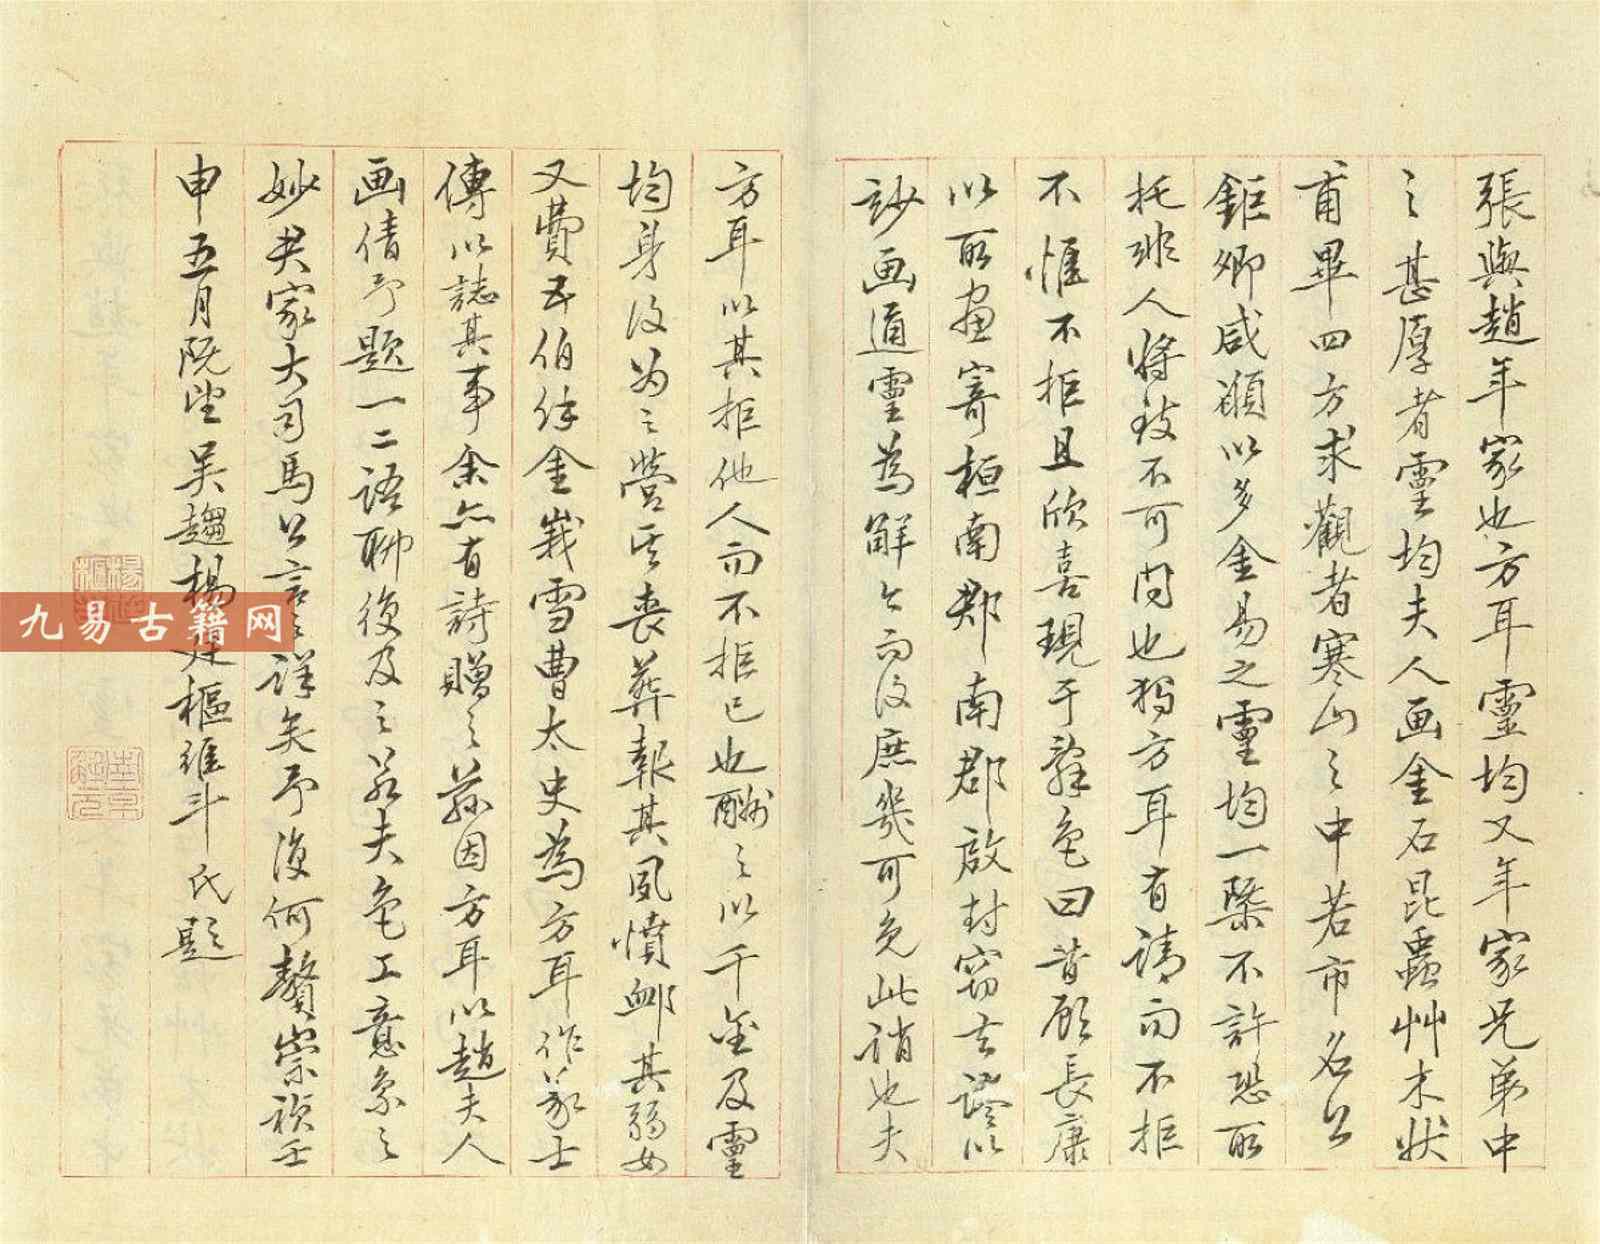 張與趙年家也方耳靈均又年家兄弟中
之甚厚者靈均夫人画金石昆蟲艸木狀
甫畢四方求觀者寒山之中若市名公
鉅卿咸願以多金易之靈均一槩不許恐所
托非人將致不可問也獨方耳有請而不拒
不惟不拒且欣喜現于辭色曰昔顧長康
以所畫寄桓南郡南郡啟封竊去謬以
妙画通靈為解今而後庶幾可免此誚也夫
方耳以其拒他人而不拒已也酬之以千金及靈
均身後为之營其喪葬報其夙憤䘏其弱女
又費五伯餘金峩雪曹太史為方耳作義士
傳以誌其事余亦有詩贈之茲因方耳以趙夫人
画倩予題一二語聊復及之若夫色工意象之
妙君家大司馬公言之詳矣予復何贅崇禎壬
申五月既望吳趨楊廷樞維斗氏題
九易古籍网